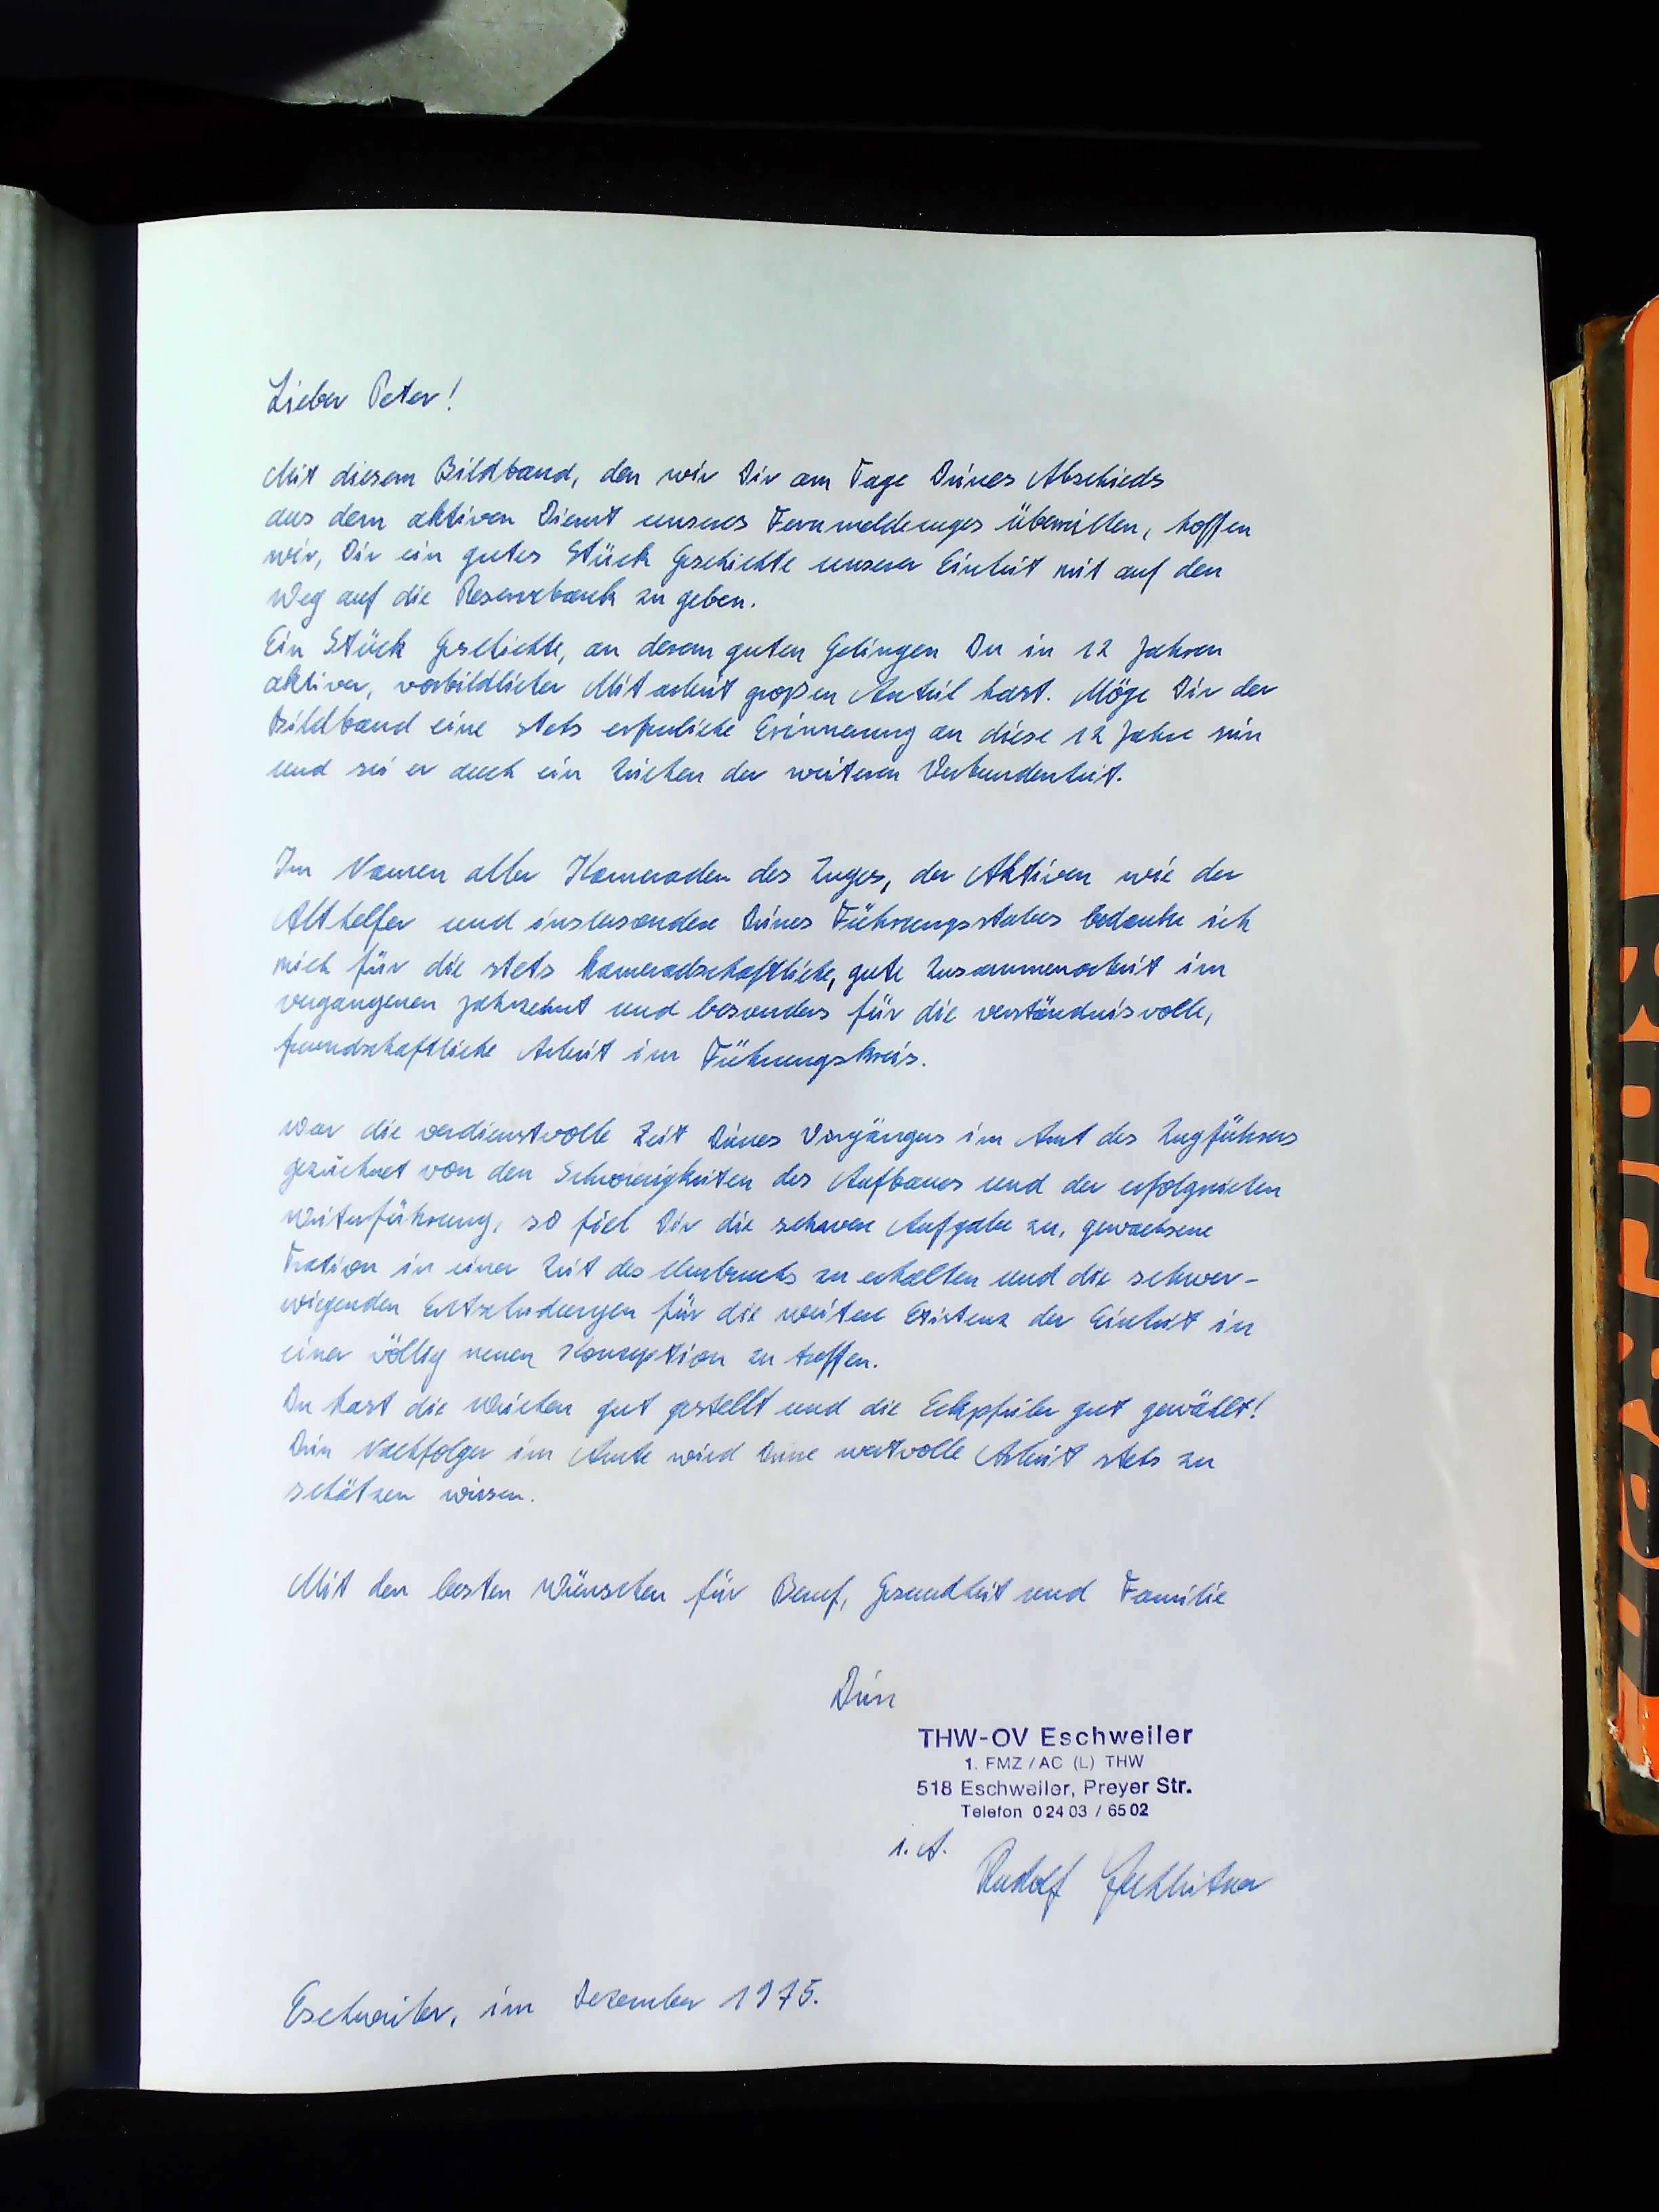 Lieber Peter!
Mit diesem Bildband, den wir Dir am Tage Deines Abschieds
aus dem aktiven Dienst unseres Fernmeldezuges überreichten, hoffen
wir, Dir ein gutes Stück Geschichte unserer Einheit mit auf den
Weg auf die Reservebank zu geben.
Ein Stück Geschichte, an derem guten Gelingen Du in 12 Jahren
aktiver, vorbildlicher Mitarbeit großen Anteil hast. Möge Dir der
Bildband eine stets erfreuliche Erinnerung an diese 12 Jahre sein
und sei er auch ein Zeichen der weiteren Verbundenheit.
Im Namen aller Kameraden des Zuges, der Aktiven wie der
Althelfer und insbesondere Deines Führungsstabes bedanke ich
mich für die stets kameradschaftliche, gute Zusammenarbeit im
vergangenen Jahrzehnt und besonders für die verständnisvolle,
freundschaftliche Arbeit im Führungskreis.
War die verdienstvolle Zeit Deines Vorgängers im Amt des Zugführers
gezeichnet von den Schwierigkeiten des Aufbaues und der erfolgreichen
Weiterführung, so fiel Dir die schwere Aufgabe zu, gewachsene
Tration in einer Zeit des Umbruchs zu erhalten und die schwer-
wiegenden Entscheidungen für die weitere Existenz der Einheit in
einer völlig neuen Konzeption zu treffen.
Du hast die Weichen gut gestellt und die Eckpfeiler gut gewählt!
Dein Nachfolger im Amte wird Deine wertvolle Arbeit stets zu
schätzen wissen.
Mit den besten Wünschen für Beruf, Gesundheit und Familie
Dein
THW-OV Eschweiler
1. FMZ/AC (L) THW
518 Eschweiler, Preyer Str.
Telefon 0 24 03 / 65 02
i.A.
Rudolf
Eschweiler, im Dezember 1975.